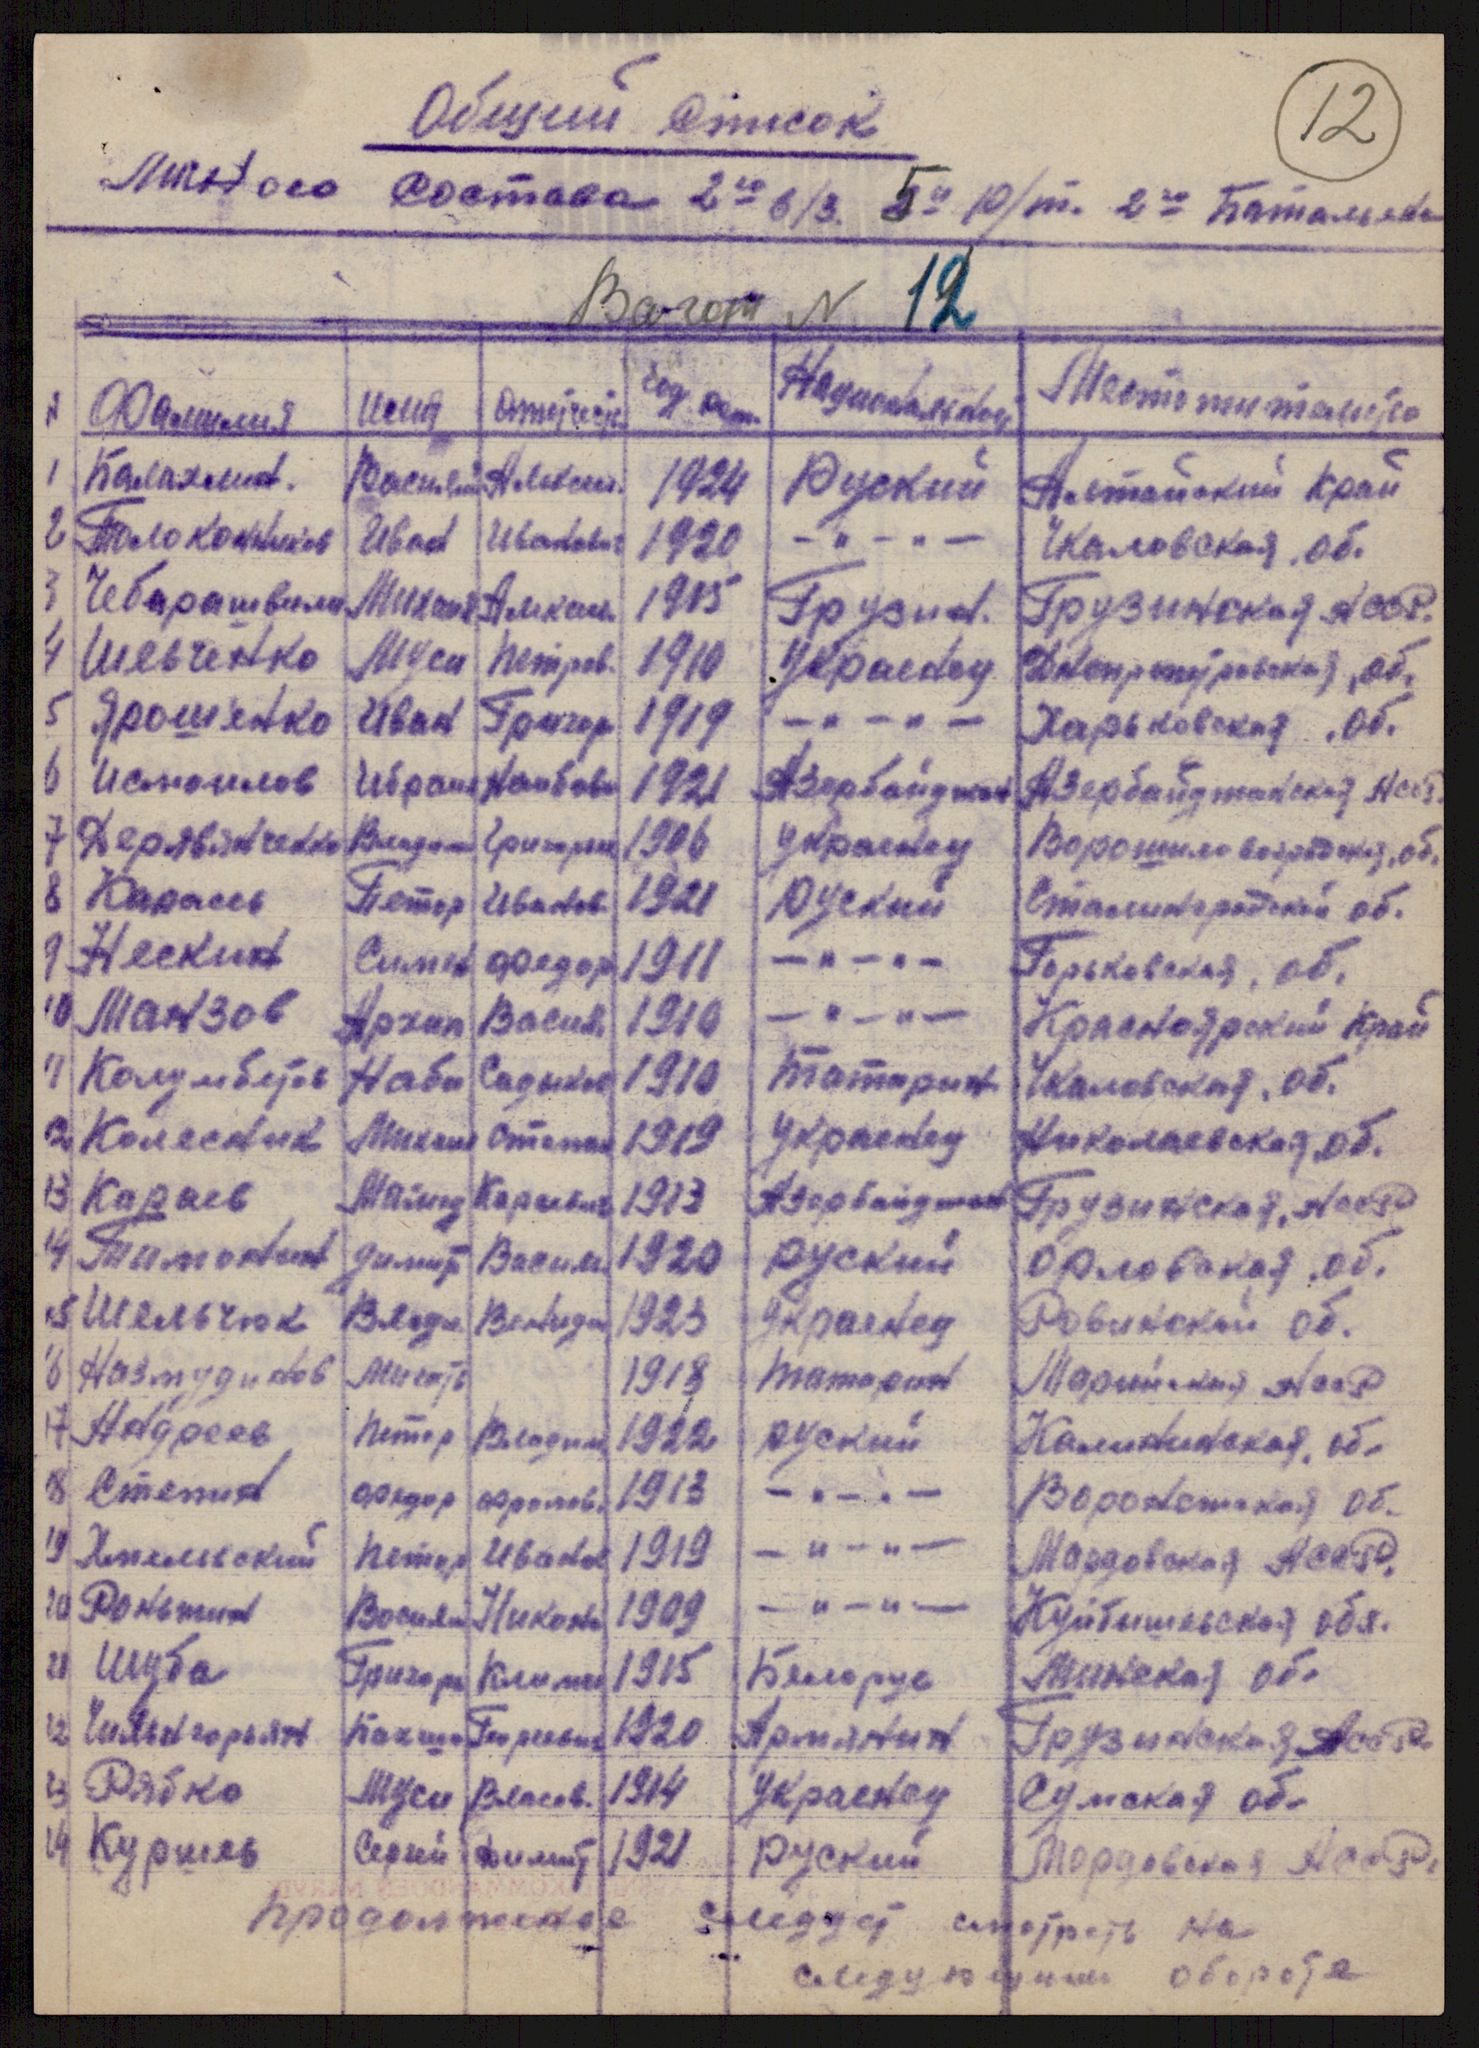 12
Общий Список
Личного Состава 2го в/з. 5й р/т. 2го Батальена
Вагон N 12
N Фамилия имя отчеств год рож. Национальност Место жительство
1 Балахнин. Василий Алексан. 1924 Руский Алтайский Край
2 Толоконников Иван Иванович 1920 — " — " — Чкаловская. об.
3 Чебарашвили Михаил Алексан. 1915 Грузин. Грузинская АССР.
4 Шевченко Муси Петров. 1910 Украенец Днепропетровская, об.
5 Ярошенко Иван Григор 1919 — " — " — Харьковская. об.
6 Исмоилов Ибраим 1921 Азербайджан Азербайджанская АССР.
7 Дерявянченко Владим Григорев 1906 украенец Ворошиловоградская, об.
8 Карась Петор Иванов. 1921 Руский Сталинградской об.
9 Нескин Симен Федор 1911 — " — " — Горьковская. об.
10 Манзов Архип Васил. 1910 — " — " — Красноярский Край
11 Колумбетов Наби Садыков 1910 татарин Чкаловская. об.
12 Колесник Михаил Степан 1919 украенец Николаевская, об.
13 Караев Мамед Караевич 1913 Азербайджан Грузинская, АССР
14 Тимонин Димит Васили 1920 руский орловская. об.
15 Шельчук Влади 1923 украенец Ровинский об.
16 Назмудинов 1918 татарин Марийская АССР
17 Андреев Петор Владим 1922 руский Калининская, об.
18 Степин Федор Фролов. 1913 — " — " — Воронежская об.
19 Хмельвский Петор Иванов 1919 — " — " — Мордовская АССР.
20 Роньжин Василий Никон 1909 — " — " — Куйбышевская обл.
21 Шуба Григори Климен 1915 Белорус Минская об.
22 Чильнгорьян Георгевич 1920 Армянин Грузинская, АССР.
23 Рябко Муси Власов. 1914 Украенец Сумская об.
24 Куршев Сергей Димит 1921 руский Мордовская АССР.
Продолжение следует смотреть на
следующим обороте